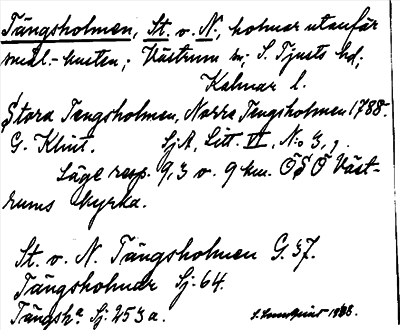 Tängsholmen, St. o. N., holmar utanför
smål.-kusten; Västrum sn; S. Tjusts hd;
Kalmar l.
Stora Tengsholmen, Norra Tengsholmen 1788.
G. Klint. SjA, Litt. VI, N:o 3,
Läge resp. 9,3 o. 9 km. ÖSÖ Väst-
rums kyrka.
St. o. N. Tängsholmen G. 37.
Tängsholmar Sj. 64.
Tängsh.a Sj. 253 a.